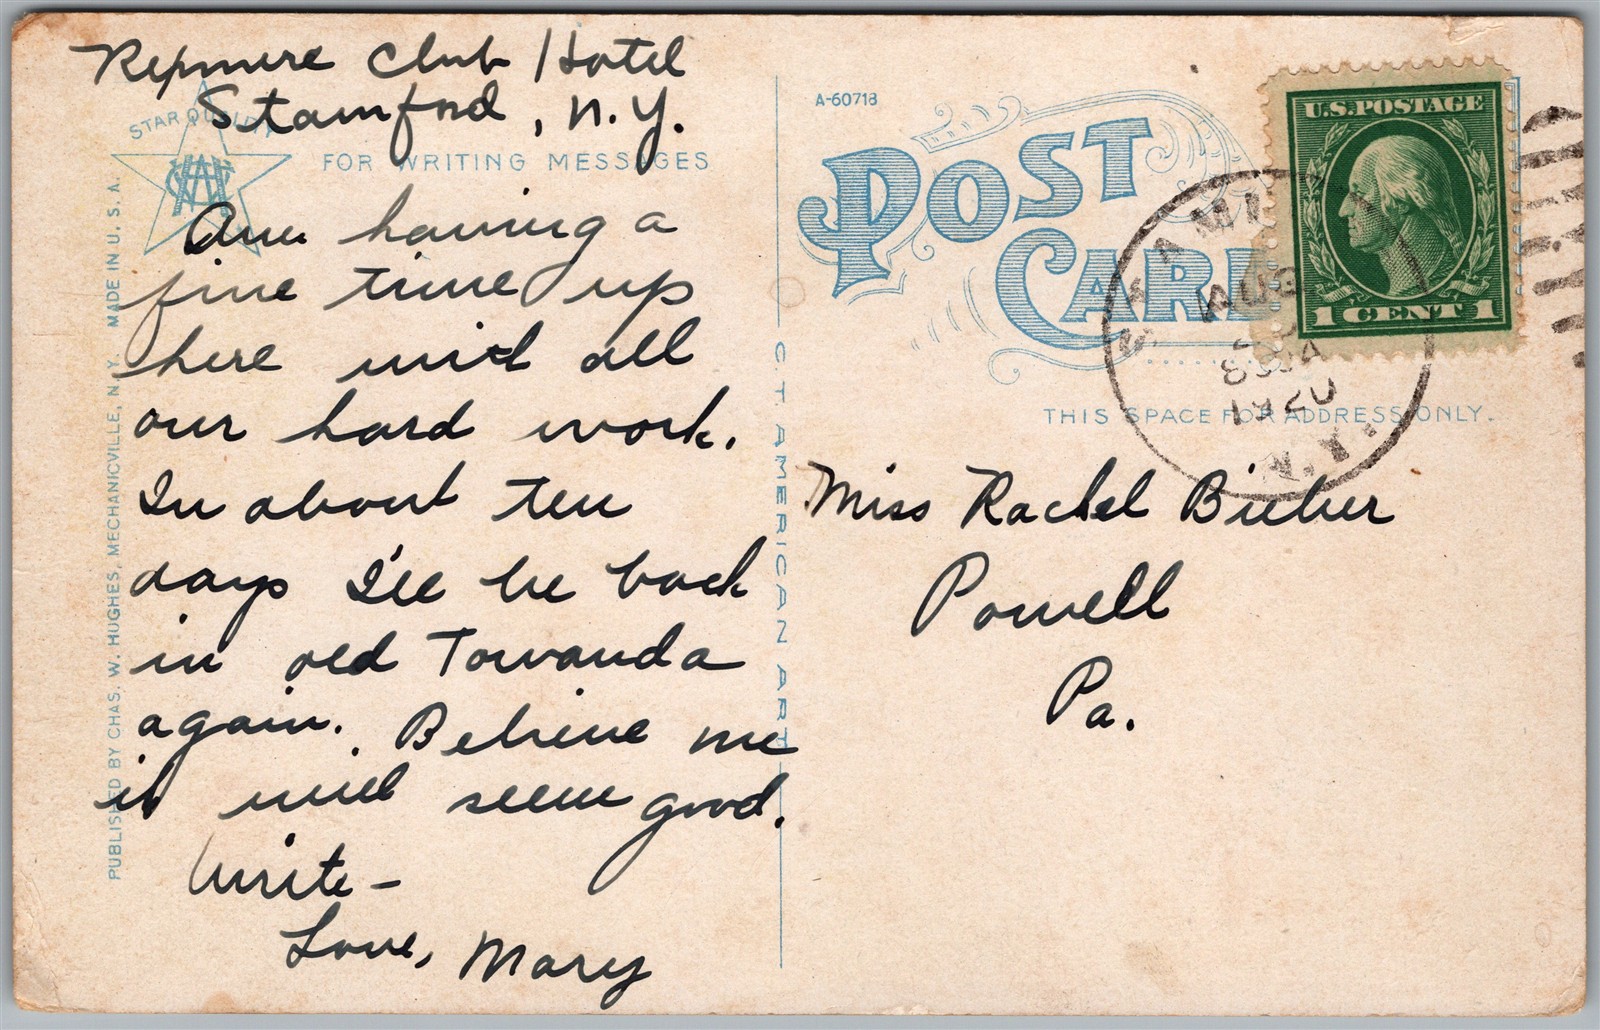 Club Hotel
Stamford, N.Y.
STAR QUALITY
FOR WRITING MESSAGES
Am having a
fine time up
here with all
our hard work.
In about ten
days I'll be back
in old Towanda
again. Believe me
it will seem good.
Write —
Love, Mary
PUBLISHED BY CHAS. W. HUGHES, MECHANICVILLE, N.Y. MADE IN U.S.A.
C.T. AMERICAN ART
A-60718
POST
CARD
U.S. POSTAGE
1 CENT 1
AUG
1920
N.Y.
THIS SPACE FOR ADDRESS ONLY.
Miss Rachel Bieber
Powell
Pa.